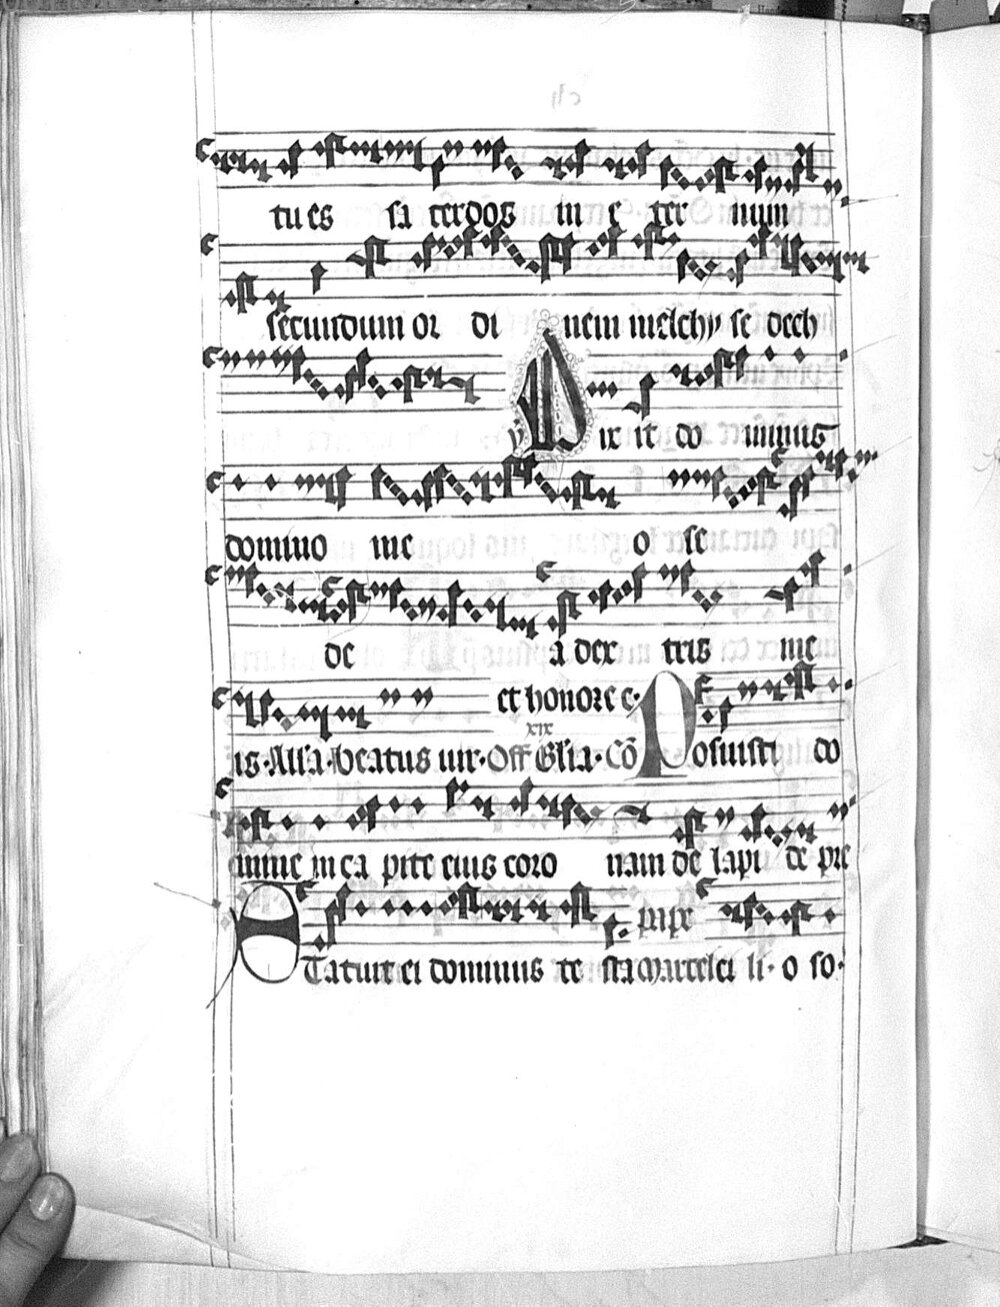 tu es sa cerdos in e ter num
secundum or di nem melchy se dech
v Dix it do minus
domino me o se
de a dex tris me
et honore c.
xix
is. All'a. beatus uir. Off Gl'ia. Cō Posuisti do
mine in ca pite eius coro nam de lapi de pre
Statuit ei dominus te sta Marcelli li. o so.